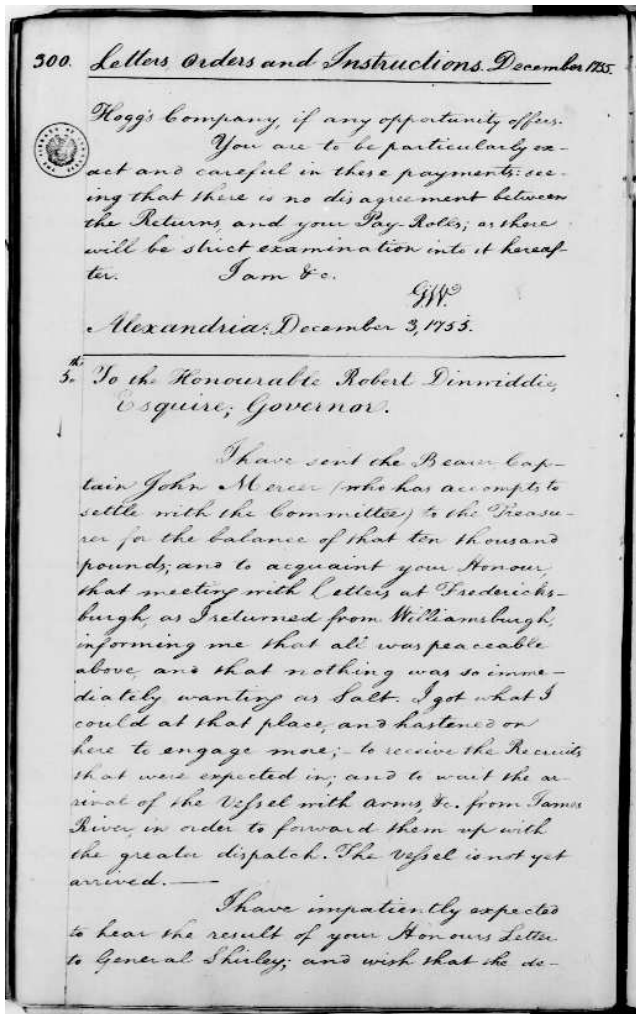 300. Letters Orders and Instructions. December 1755.
Hogg's Company, if any opportunity offers.
You are to be particularly ex-
act and careful in these payments: see-
ing that there is no disagreement between
the Returns, and your Pay-Rolls; as there
will be strict examination into it hereaf-
ter. I am &c.
GW.
Alexandria: December 3, 1755.
5.th To the Honourable Robert Dinwiddie,
Esquire; Governor.
I have sent the Bearer Cap-
tain John Mercer (who has accompts to
settle with the Committee) to the Treasu-
rer for the balance of that ten thousand
pounds; and to acquaint your Honour,
that meeting with Letters at Fredericks-
burgh, as I returned from Williamsburgh,
informing me that all was peaceable
above, and that nothing was so imme-
diately wanting as Salt. I got what I
could at that place, and hastened on
here to engage more; - to receive the Recruits
that were expected in; and to wait the ar-
rival of the Vessel with arms, &c. from James
River, in order to forward them up with
the greater dispatch. The Vessel is not yet
arrived. —
I have impatiently expected
to hear the result of your Honours Letter
to General Shirley; and wish that the de-